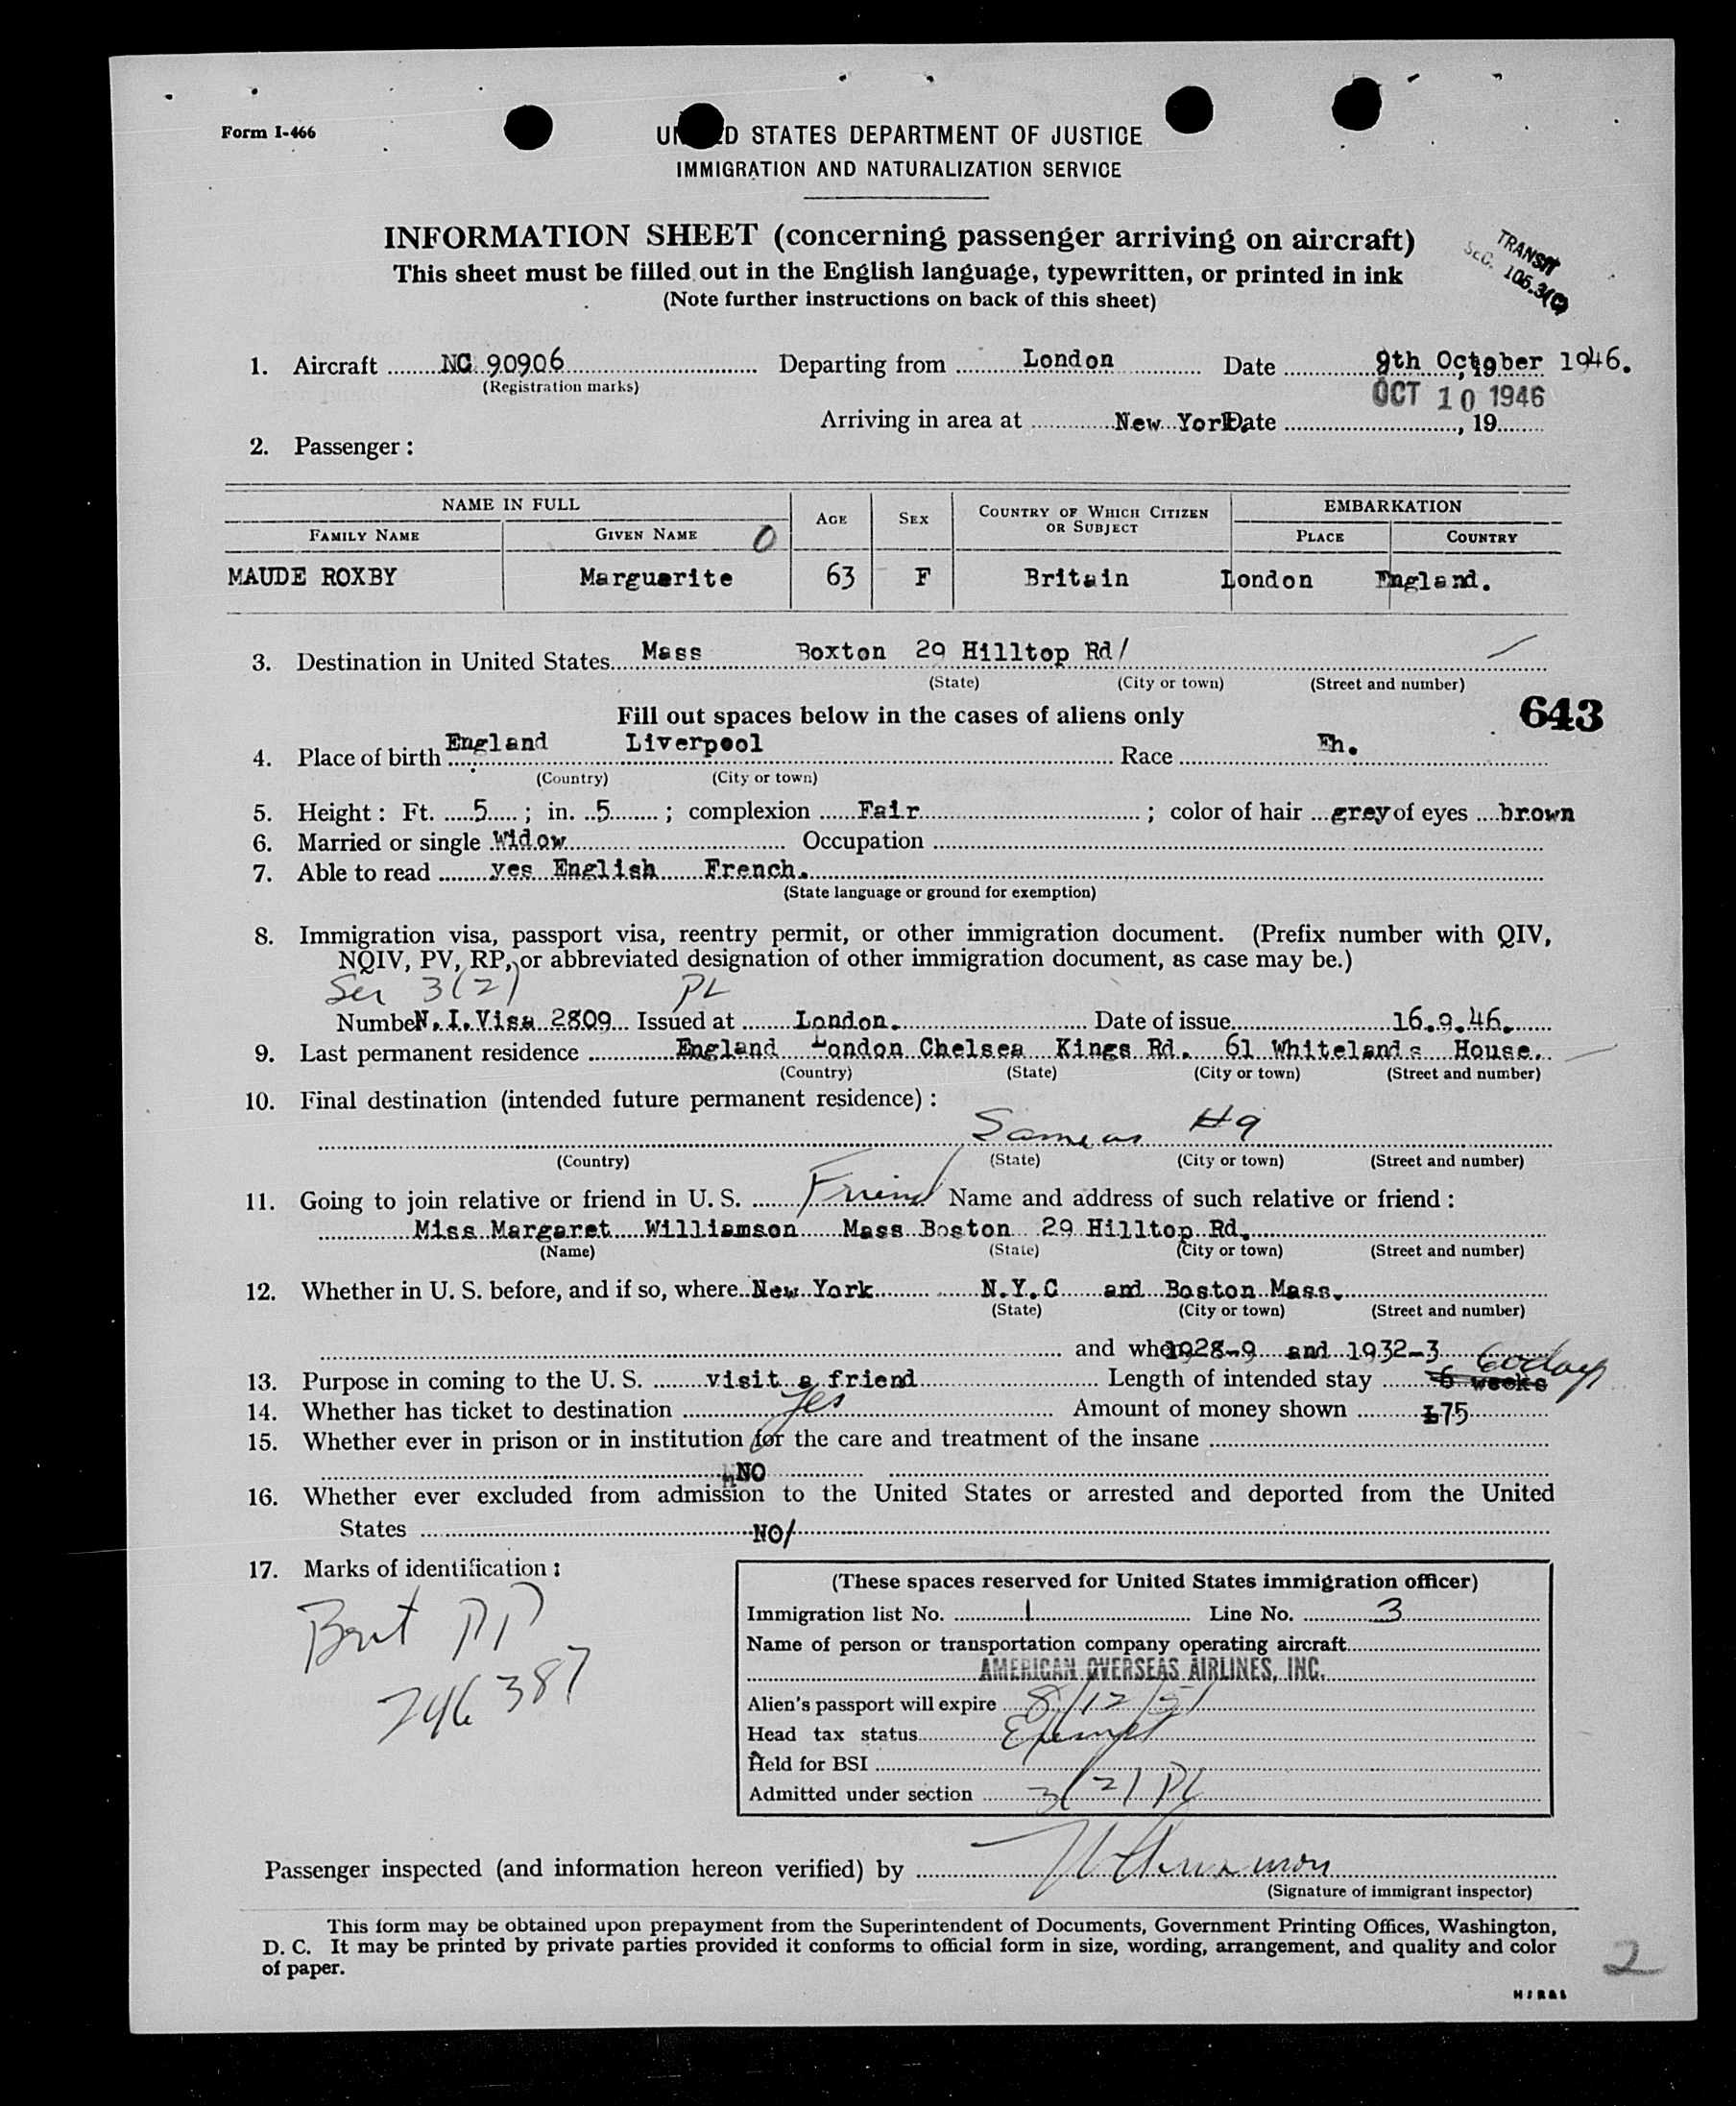 Form I-466
UNITED STATES DEPARTMENT OF JUSTICE
IMMIGRATION AND NATURALIZATION SERVICE
INFORMATION SHEET (concerning passenger arriving on aircraft)
This sheet must be filled out in the English language, typewritten, or printed in ink
(Note further instructions on back of this sheet)
TRANSIT
SEC. 105.3(C)
1. Aircraft NC 90906 Departing from London Date 9th October 1946. , 19
(Registration marks)
OCT 10 1946
Arriving in area at New York Date , 19
2. Passenger :
NAME IN FULL AGE SEX COUNTRY OF WHICH CITIZEN OR SUBJECT EMBARKATION
FAMILY NAME GIVEN NAME O PLACE COUNTRY
MAUDE ROXBY Marguerite 63 F Britain London England.
3. Destination in United States Mass Boxton 29 Hilltop Rd/
(State) (City or town) (Street and number)
643
Fill out spaces below in the cases of aliens only
4. Place of birth England Liverpool Race Eh.
(Country) (City or town)
5. Height : Ft. 5 ; in. 5 ; complexion Fair ; color of hair grey of eyes brown
6. Married or single Widow Occupation
7. Able to read yes English French.
(State language or ground for exemption)
8. Immigration visa, passport visa, reentry permit, or other immigration document. (Prefix number with QIV,
NQIV, PV, RP, or abbreviated designation of other immigration document, as case may be.)
Sec 3(2) PL
Number N.I.Visa 2809 Issued at London. Date of issue 16.9.46.
9. Last permanent residence England London Chelsea Kings Rd. 61 Whitelands House.
(Country) (State) (City or town) (Street and number)
10. Final destination (intended future permanent residence) :
Same as #9
(Country) (State) (City or town) (Street and number)
11. Going to join relative or friend in U. S. Friend Name and address of such relative or friend :
Miss Margaret Williamson Mass Boston 29 Hilltop Rd.
(Name) (State) (City or town) (Street and number)
12. Whether in U. S. before, and if so, where New York N.Y.C and Boston Mass.
(State) (City or town) (Street and number)
and when 1928-9 and 1932-3
13. Purpose in coming to the U. S. visit a friend Length of intended stay 6 weeks 60 days
14. Whether has ticket to destination Yes Amount of money shown £75
15. Whether ever in prison or in institution for the care and treatment of the insane
NO
16. Whether ever excluded from admission to the United States or arrested and deported from the United
States NO/
17. Marks of identification :
Brit PP
746387
(These spaces reserved for United States immigration officer)
Immigration list No. 1 Line No. 3
Name of person or transportation company operating aircraft
AMERICAN OVERSEAS AIRLINES, INC.
Alien's passport will expire 8/12/51
Head tax status Exempt
Held for BSI
Admitted under section 3(2) PL
Passenger inspected (and information hereon verified) by
(Signature of immigrant inspector)
This form may be obtained upon prepayment from the Superintendent of Documents, Government Printing Offices, Washington,
D. C. It may be printed by private parties provided it conforms to official form in size, wording, arrangement, and quality and color
of paper.
2